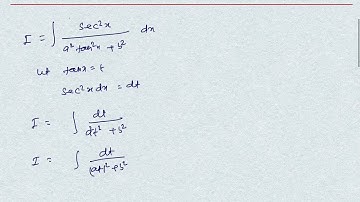 I = ∫ sec²x / (a² tan²x + b²) dx
let tanx = t
sec²x dx = dt
I = ∫ dt / (at² + b²)
I = ∫ dt / ((at)² + b²)